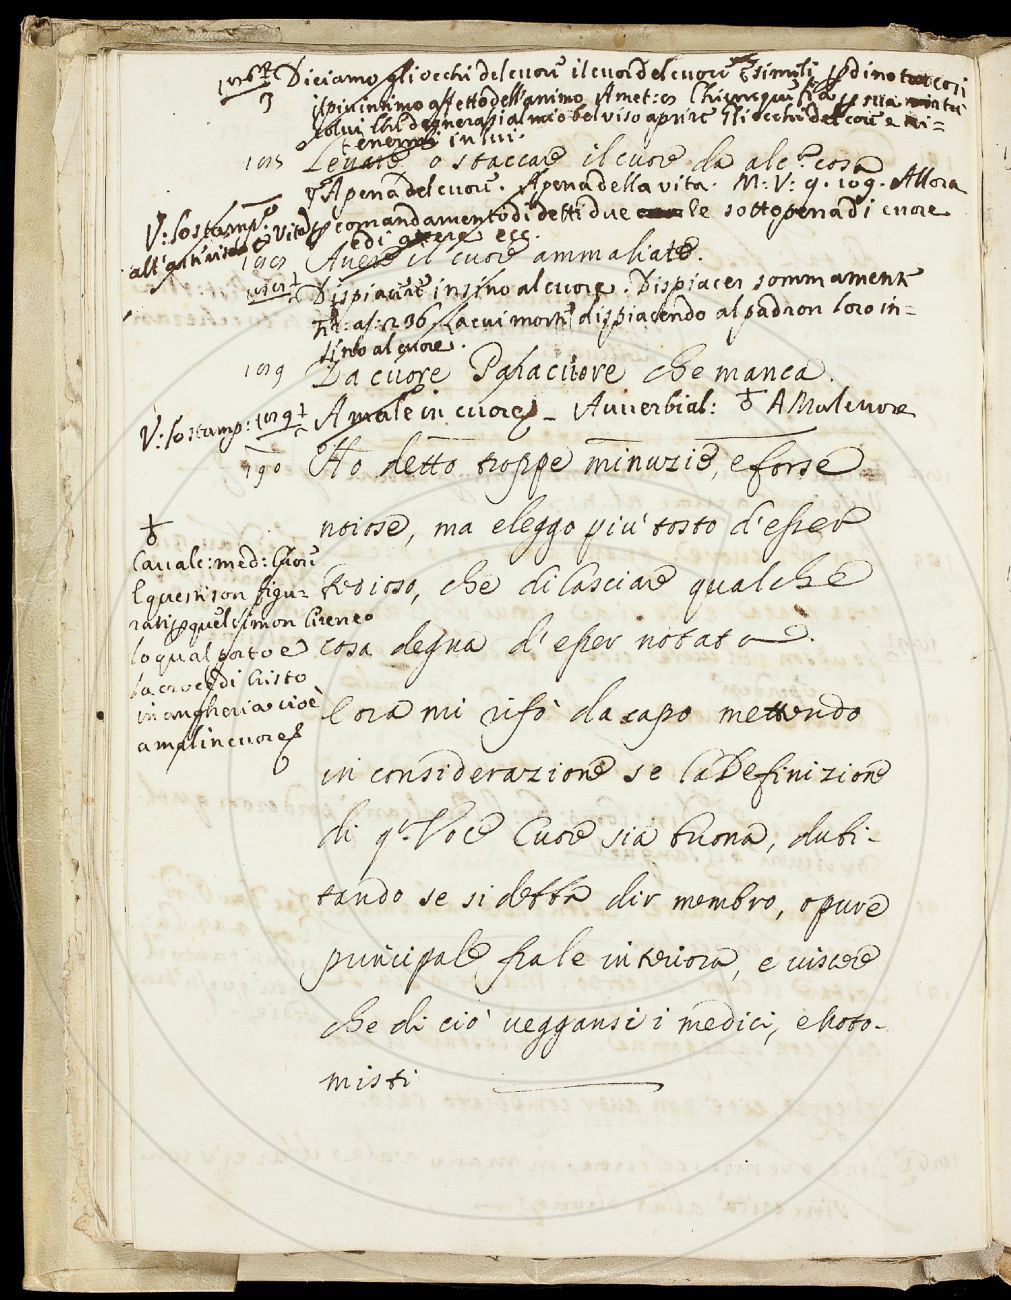 Diciamo gli occhi del cuore il cuor del cuore e simili p dinotar così
il piu intimo affetto dell'animo Amet: 
colui che degnerassi al mio bel viso aprire gli occhi del cor e ri=
tenermi in lui.
Levare o staccare il cuore da alc.ª cosa
Apena del cuore. Apena della vita. M: V: 9. 109. Allora
V: lo stamp.º vita
comandamento di detti due le sotto pena di cuore
e di avere ecc.
Avere il cuore ammaliato.
Dispiacere insino al cuore. Dispiacer sommamente
la cui morte dispiacendo al padron loro in=
sino al cuore.
1089 Da cuore Palacuore che manca.
V: lo stamp: A male in cuore Avverbial: A Malcuore
190 Ho detto troppe minuzie, e forse
noiose, ma eleggo più tosto d'esser
tedioso, che di lasciare qualche
cosa degna d'esser notata.
Caualc: med: Cuor:
E questi son figu=
rati p quel Simon Cireneo
lo qual porto e
la croce di Cristo
in angheria cioè
a mal in cuore
E ora mi rifò da capo mettendo
in considerazione se la Definizione
di q.ª Voce Cuore sia buona, dubi-
tando se si debba dir membro, opure
principale fra le interiora, e viscere
che di ciò veggansi i medici, e noto-
misti